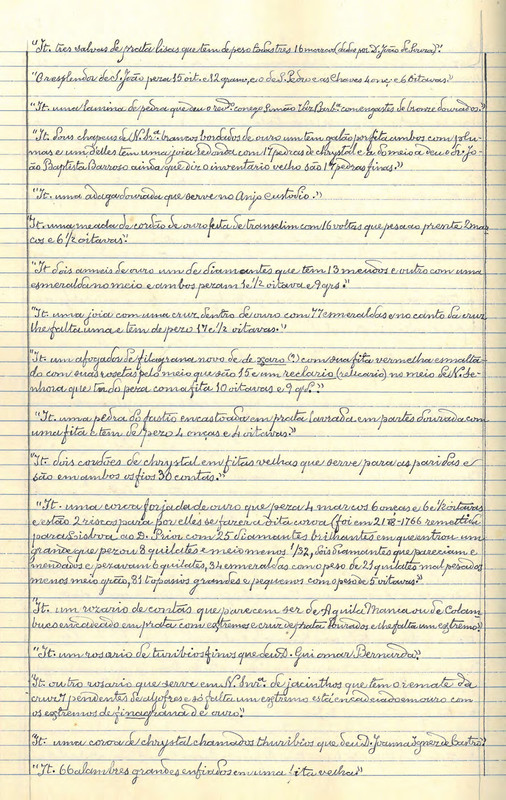 "It. tres salvas de prata lisas que tem de peso todas tres 16 marcos (dadas por D. João de Souza)."
"O resplendor de S. João peza 15 oit. e 12 grams, e o de S. Pedro e as Chaves 4 onç e 6 oitavas."
"It. uma lamina de pedra que deu o revº conego Simão Barbª com engaste de bronze dourado."
"It. dous chapeus de N. Snrª brancos bordados de ouro um tem galão por fita ambos com plu-
mas e um delles tem uma joia redonda com 17 pedras de chrystal e a do meio a deu o dr. Jo-
ão Baptista Barroso ainda que diz o inventario velho são 17 pedras finas."
"It. uma adaga dourada que serve no Anjo Custodio."
"It. uma meada de cordão de ouro feita de transelim com 16 voltas que pesa ao prente 2 mar-
cos e 6 1/2 oitavas."
"It dois anneis de ouro um de diamantes que tem 13 meudos e outro com uma
esmeralda no meio e ambos pezam 1 e 1/2 oitava e 9 grs."
"It. uma joia com uma cruz dentro de ouro com 77 esmeraldas e no canto da cruz
lhe falta uma e tem de pezo 17 e 1/2 oitavas."
"It. um afogador de filagrana novo de de xaro (?) com sua fita vermelha esmalta-
do com suas rosetas pelo meio que são 15 e um reclario (relicario) no meio de N. Se-
nhora que tudo peza com a fita 10 oitavas e 9 grs."
"It. uma pedra do fastio encastoada em prata lavrada em partes dourada com
uma fita e tem de pezo 4 onças e 4 oitavas."
"It. dois cordões de chrystal em fitas velhas que serve para as paridas e
são em ambos os fios 36 contas."
"It. uma corôa forjada de ouro que peza 4 marcos 6 onças e 6 e 1/2 oitavas
e estão 2 riscos para por elles se fazer a dita corôa (foi em 21-8-1766 remettida
para Lisboa ao D. Prior com 25 diamantes brilhantes em que entrou um
grande que pezou 8 quilates e meio menos 1/32, seis diamantes que pareciam e-
mendados e pezavam 6 quilates, 34 esmeraldas com o peso de 21 quilates mal pesados
menos meio grão, 81 topasios grandes e pequenos com o peso de 5 oitavas."
"It. um rozario de contas que parecem ser de Aquila Manna ou de Colam
buco encadeado em prata com extremos e cruz de prata dourados e lhe falta um extremo."
"It. um rosario de turibios finos que deu D. Guiomar Bernarda."
"It. outro rosario que serve em N. Snrª. de jacinthos que tem o remate da
cruz 7 pendentes de aljofres e só falta um extremo está encadeado em ouro com
os extremos de finagrana de ouro."
"It. uma coroa de chrystal chamados thuribios que deu D. Joanna Ignez de Castro."
"It. 66 alambres grandes enfiados em uma fita velha."